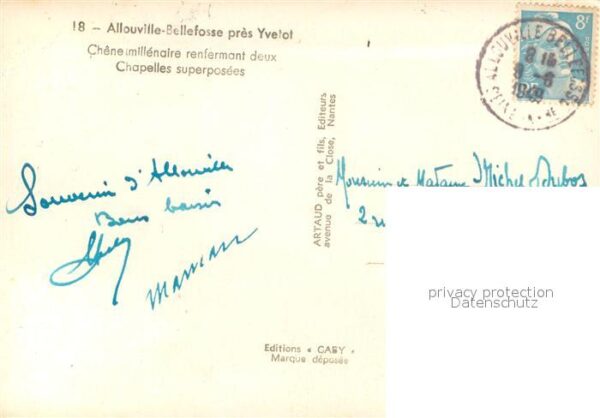 18 - Allouville-Bellefosse près Yvetot
Chêne millénaire renfermant deux
Chapelles superposées
8F
ALLOUVILLE BELLEFOSSE
1949
Souvenir d'Allouville
Bons baisers
maman
ARTAUD père et fils, Editeurs
avenue de la Close, Nantes
Monsieur et Madame Michel
2
privacy protection
Datenschutz
Editions « GABY »
Marque déposée